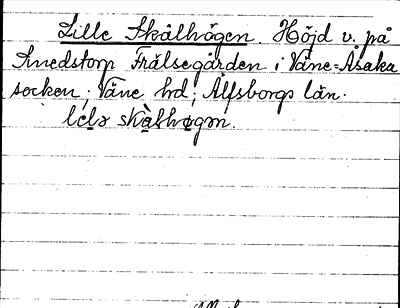 Lille Skålhögen. Höjd v. på
Smedstorp Frälsegården i Väne-Åsaka
socken; Väne hd; Älfsborgs län.